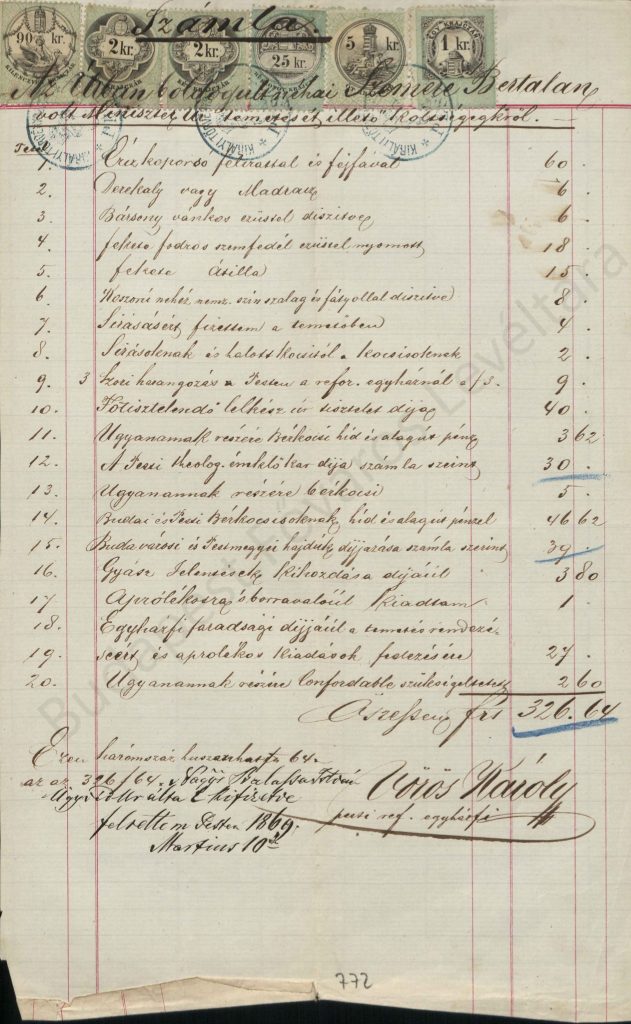 Számla.
90 kr. 2 kr. 2 kr. 25 kr. 5 kr. 1 kr.
Az Urban boldogult Szemere Bertalan
volt Minister Úr temetését illető költségekről.
1. Ércz koporsó felirással és fejfával 60 .
2. Derekaly vagy Madracz 6 .
3. Bársony vánkos ezüstel diszitve 6 .
4. fekete fodros szemfedél ezüstel nyomott 18 .
5. fekete Atilla 15 .
6. Koszorú nehéz nemz. szin szalag és fátyollal diszitve 8 .
7. Sirásásért fizettem a temetőben 4 .
8. Sirásóknak és halottkocsitól a kocsisoknak 2 .
9. 3 Szori harangozás Pesten a refor. egyháznál a f 3. 9 .
10. Főtisztelendő lelkész úr tisztelet dija 40 .
11. Ugyanannak részére Bérkocsi hid és alagút pénz 3 62
12. A Pesti theolog. éneklő kar dija számla szerint 30 .
13. Ugyanannak részére bérkocsi 5 .
14. Budai és Pesti Bérkocsisoknak hid és alagút pénzel 46 62
15. Budavárosi és Pestmegyei hajduk dijjazása számla szerint 39 .
16. Gyász Jelentések kihordása dijáúl 3 80
17. Aprólékosra s borravalóúl kiadtam 1 .
18. Egyházfi faradsági dijjáúl a temetés rendezé-
19. seért és aprolékos kiadások fedezésére 27 .
20. Ugyanannak részére Confordable szükségeltetett 2 60
Öszessen frt 326.64
Ezen háromszáz huszonhat ft 64.
az az 326 f 64. Nagys Balassa István
Ügyvéd Úr által kifizetve
felvettem Pesten 1869.
Martius 10
Vörös Károly
pesti ref. egyházfi
772
Budapest Főváros Levéltára